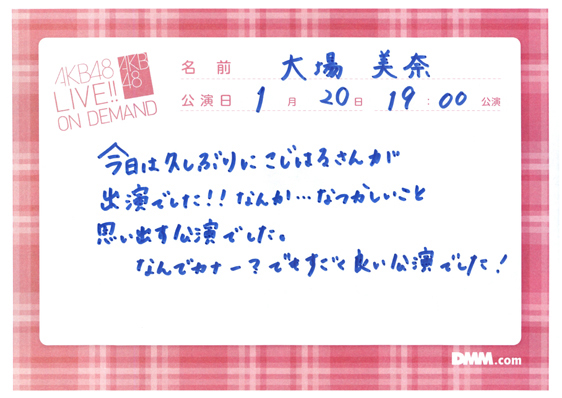 AKB48
LIVE!!
ON DEMAND
AKB
48
名前 大場 美奈
公演日 1月 20日 19:00 公演
今日は久しぶりにこじはるさんが
出演でした!!なんか…なつかしいこと
思い出す公演でした。
なんでカナー?でもすごく良い公演でした!
DMM.com